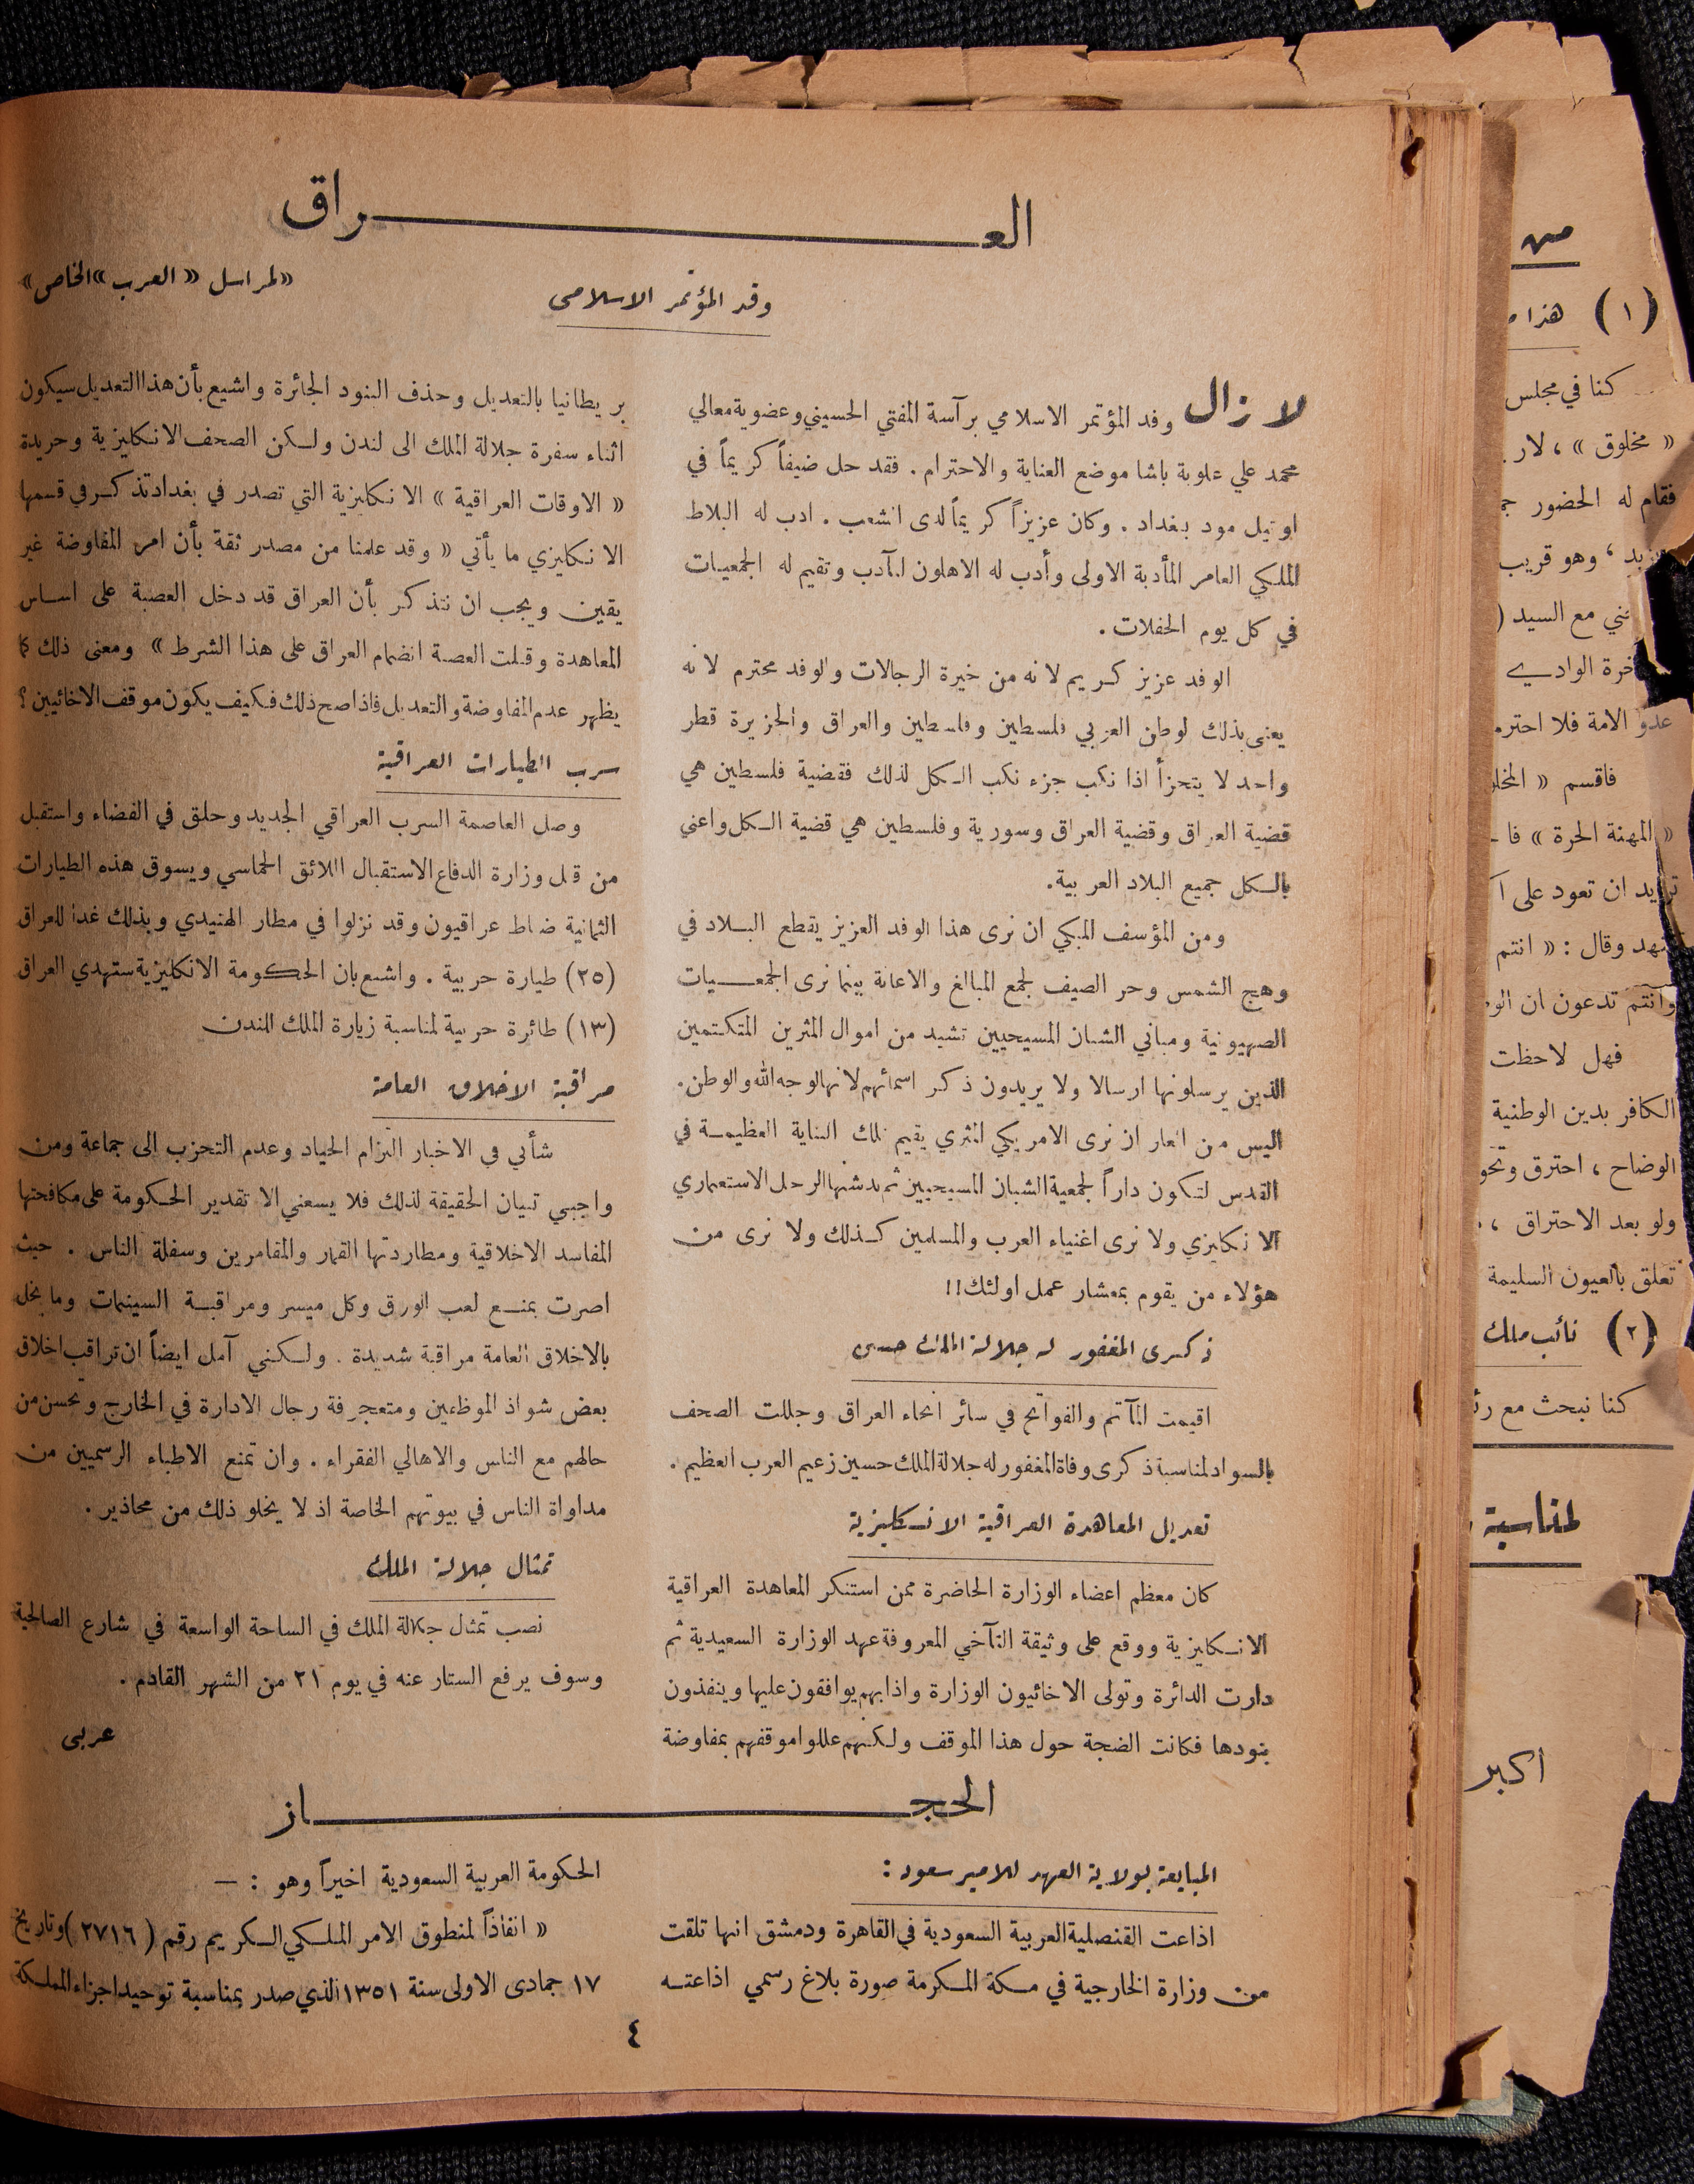 العـــراق
«لمراسل «العرب» الخاص»
وفد المؤتمر الاسلامي
لا زال وفد المؤتمر الاسلامي برآسة المفتي الحسيني وعضوية معالي
محمد علي علوبة باشا موضع العناية والاحترام . فقد حل ضيفاً كريماً في
اوتيل مود بغداد . وكان عزيزاً كريماً لدى الشعب . ادب له البلاط
الملكي العامر المأدبة الاولى وأدب له الاهلون المآدب وتقيم له الجمعيات
في كل يوم الحفلات .
الوفد عزيز كريم لانه من خيرة الرجالات والوفد محترم لانه
يعنى بذلك لوطن العربي فلسطين وفلسطين والعراق والجزيرة قطر
واحد لا يتجزأ اذا نكب جزء نكب الكل لذلك فقضية فلسطين هي
قضية العراق وقضية العراق وسورية وفلسطين هي قضية الكل واعني
بالكل جميع البلاد العربية .
ومن المؤسف المبكي ان نرى هذا الوفد العزيز يقطع البلاد في
وهج الشمس وحر الصيف لجمع المبالغ والاعانة بينما نرى الجمعيات
الصهيونية ومباني الشبان المسيحيين تشيد من اموال المثرين المتكتمين
الذين يرسلونها ارسالا ولا يريدون ذكر اسمائهم لانها لوجه الله والوطن .
اليس من العار ان نرى الامريكي المثري يقيم تلك البناية العظيمة في
القدس لتكون داراً لجمعية الشبان المسيحيين ثم يدشنها الرجل الاستعماري
الانكليزي ولا نرى اغنياء العرب والمسلمين كذلك ولا نرى من
هؤلاء من يقوم بمعشار عمل اولئك !!
ذكرى المغفور له جلالة الملك حسين
اقيمت المآتم والفواتح في سائر انحاء العراق وجللت الصحف
بالسواد لمناسبة ذكرى وفاة المغفور له جلالة الملك حسين زعيم العرب العظيم .
تعديل المعاهدة العراقية الانكليزية
كان معظم اعضاء الوزارة الحاضرة ممن استنكر المعاهدة العراقية
الانكليزية ووقع على وثيقة التآخي المعروفة عهد الوزارة السعيدية ثم
دارت الدائرة وتولى الاخائيون الوزارة واذا بهم يوافقون عليها وينفذون
بنودها فكانت الضجة حول هذا الموقف ولكنهم عللوا موقفهم بمفاوضة
بريطانيا بالتعديل وحذف البنود الجائرة واشيع بأن هذا التعديل سيكون
اثناء سفرة جلالة الملك الى لندن ولكن الصحف الانكليزية وجريدة
« الاوقات العراقية » الانكليزية التي تصدر في بغداد تذكر في قسمها
الانكليزي ما يأتي « وقد علمنا من مصدر ثقة بأن امر المفاوضة غير
يقين ويجب ان نتذكر بأن العراق قد دخل العصبة على اساس
المعاهدة وقبلت العصبة انضمام العراق على هذا الشرط » ومعنى ذلك كما
يظهر عدم المفاوضة والتعديل فاذا صح ذلك فكيف يكون موقف الاخائيين ؟
سرب الطيارات العراقية
وصل العاصمة السرب العراقي الجديد وحلق في الفضاء واستقبل
من قبل وزارة الدفاع الاستقبال اللائق الحماسي ويسوق هذه الطيارات
الثمانية ضباط عراقيون وقد نزلوا في مطار الهنيدي وبذلك غدا للعراق
(٢٥) طيارة حربية . واشيع بان الحكومة الانكليزية ستهدي العراق
(١٣) طائرة حربية لمناسبة زيارة الملك للندن
مراقبة الاخلاق العامة
شأني في الاخبار التزام الحياد وعدم التحزب الى جماعة ومن
واجبي تبيان الحقيقة لذلك فلا يسعني الا تقدير الحكومة على مكافحتها
المفاسد الاخلاقية ومطاردتها القمار والمقامرين وسفلة الناس . حيث
اصرت بمنع لعب الورق وكل ميسر ومراقبة السينمات وما يخل
بالاخلاق العامة مراقبة شديدة . ولكنني آمل ايضاً ان تراقب اخلاق
بعض شواذ الموظفين ومتعجرفة رجال الادارة في الخارج وتحسن من
حالهم مع الناس والاهالي الفقراء . وان تمنع الاطباء الرسميين من
مداواة الناس في بيوتهم الخاصة اذ لا يخلو ذلك من محاذير .
تمثال جلالة الملك
نصب تمثال جلالة الملك في الساحة الواسعة في شارع الصالحية
وسوف يرفع الستار عنه في يوم ٢١ من الشهر القادم .
عربي
الحجـــاز
المبايعة بولاية العهد للامير سعود :
اذاعت القنصلية العربية السعودية في القاهرة ودمشق انها تلقت
من وزارة الخارجية في مكة المكرمة صورة بلاغ رسمي اذاعته
الحكومة العربية السعودية اخيراً وهو : —
« انفاذاً لمنطوق الامر الملكي الكريم رقم ( ٢٧١٦ ) وتاريخ
١٧ جمادى الاولى سنة ١٣٥١ الذي صدر بمناسبة توحيد اجزاء المملكة
٤
من
(١) هذا
كنا في مجلس
« مخلوق » ، لار
فقام له الحضور
وهو قريب
مع السيد (
الوادي
عدو الامة فلا
فاقسم «
« المهنة الحرة » فا
تريد ان تعود على
وقال : « انتم
وانتم تدعون ان
فهل لاحظت
الكافر بدين الوطنية
الوضاح ، احترق
ولو بعد الاحتراق ،
تعلق بالعيون السليمة
(٢) نائب ملك
كنا نبحث مع
لمناسبة
اكبر